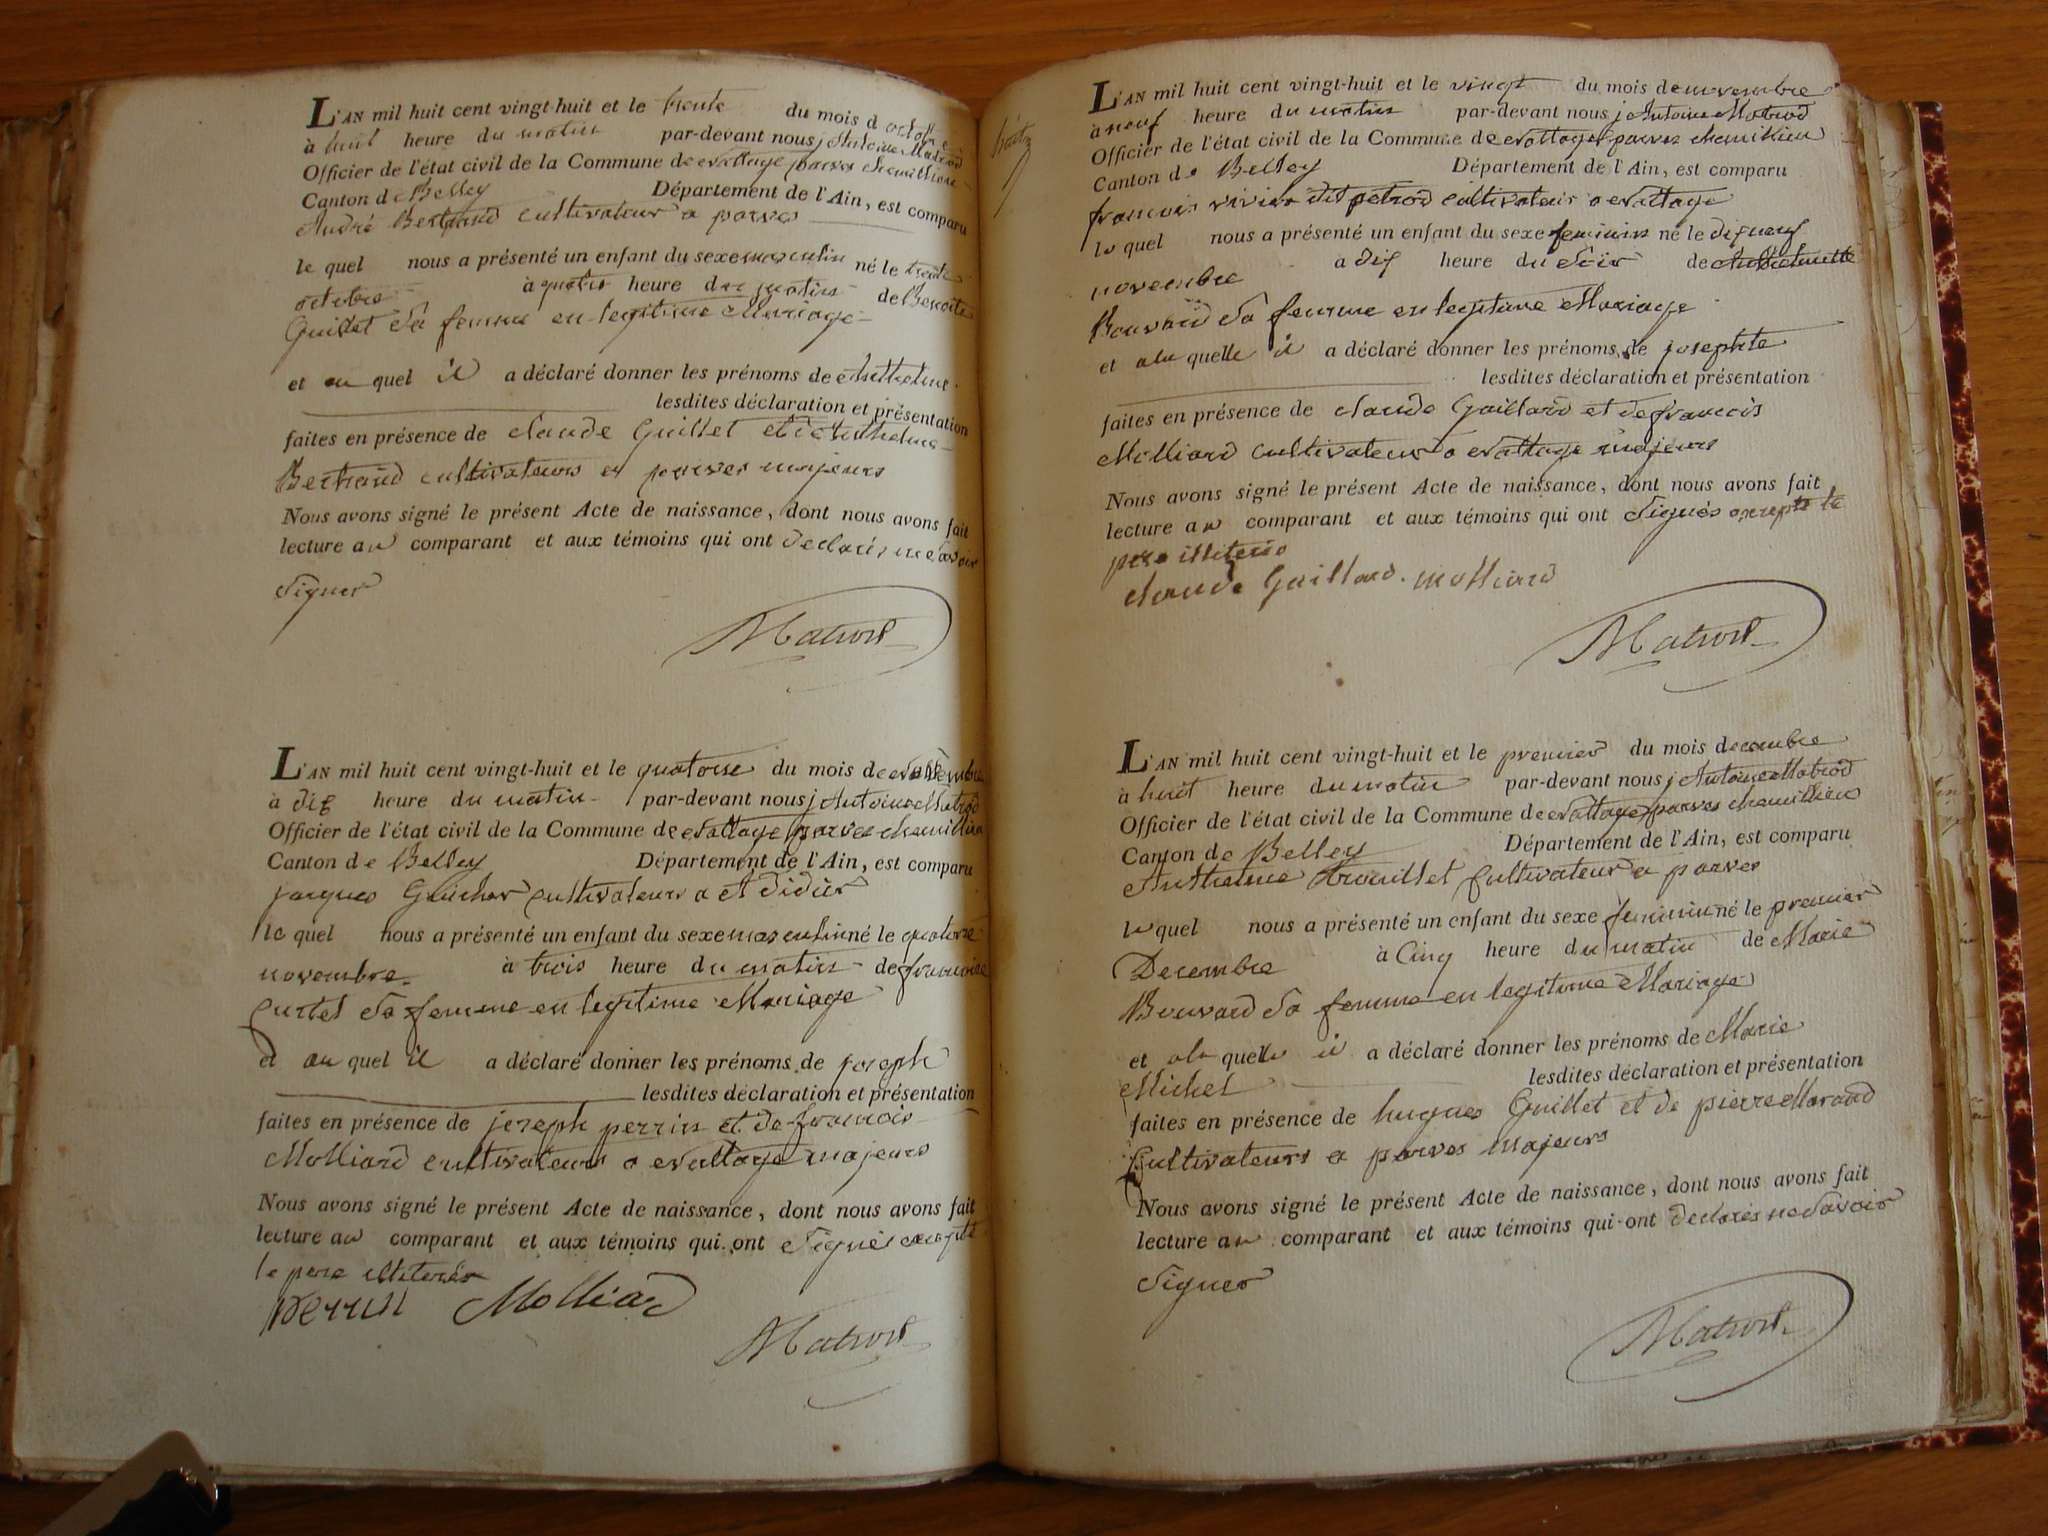 L'AN mil huit cent vingt-huit et le trente du mois d octobre
à huit heure du matin par-devant nous j Antoine Matrod
Officier de l'état civil de la Commune de nattage parves chemillieu
Canton de Belley Département de l'Ain, est comparu
André Bertrand cultivateur a parves
le quel nous a présenté un enfant du sexe masculin né le trente
octobre à quatre heure du matin de Benoite
Guillet sa femme en legitime Mariage
et au quel il a déclaré donner les prénoms de Anthelme
lesdites déclaration et présentation
faites en présence de claude Guillet et de Anthelme
Bertrand cultivateurs a parves majeurs
Nous avons signé le présent Acte de naissance, dont nous avons fait
lecture au comparant et aux témoins qui ont declarés ne savoir
signer
Matrod
L'AN mil huit cent vingt-huit et le quatorze du mois de novembre
à dix heure du matin par-devant nous j Antoine Matrod
Officier de l'état civil de la Commune de nattage parves chemillieu
Canton de Belley Département de l'Ain, est comparu
jacques cultivateur a st didier
le quel nous a présenté un enfant du sexe masculin né le quatorze
novembre à trois heure du matin de francoise
Curtet sa femme en legitime Mariage
et au quel il a déclaré donner les prénoms de joseph
lesdites déclaration et présentation
faites en présence de joseph perrin et de francois
Molliard cultivateurs a nattage majeurs
Nous avons signé le présent Acte de naissance, dont nous avons fait
lecture au comparant et aux témoins qui ont signés excepté
le pere
perrin Molliard
Matrod
L'AN mil huit cent vingt-huit et le vingt du mois de novembre
à neuf heure du matin par-devant nous j Antoine Matrod
Officier de l'état civil de la Commune de nattage parves chemillieu
Canton de Belley Département de l'Ain, est comparu
francois rivier dit petrod cultivateur a nattage
le quel nous a présenté un enfant du sexe feminin né le dixneuf
novembre a dix heure du soir de
Bouvard sa femme en legitime Mariage
et a la quelle il a déclaré donner les prénoms de josephte
lesdites déclaration et présentation
faites en présence de claude Gaillard et de francois
Molliard cultivateurs a nattage majeurs
Nous avons signé le présent Acte de naissance, dont nous avons fait
lecture au comparant et aux témoins qui ont signés excepté le
pere
claude Gaillard. molliard
Matrod
L'AN mil huit cent vingt-huit et le premier du mois decembre
à huit heure du matin par-devant nous j Antoine Matrod
Officier de l'état civil de la Commune de nattage parves chemillieu
Canton de Belley Département de l'Ain, est comparu
Anthelme trouillet Cultivateur a parves
le quel nous a présenté un enfant du sexe feminin né le premier
Decembre à Cinq heure du matin de Marie
Bouvard sa femme en legitime Mariage
et a la quelle il a déclaré donner les prénoms de Marie
Michel lesdites déclaration et présentation
faites en présence de hugues Guillet et de pierre Morand
Cultivateurs a parves majeurs
Nous avons signé le présent Acte de naissance, dont nous avons fait
lecture au comparant et aux témoins qui ont declarés ne savoir
signer
Matrod